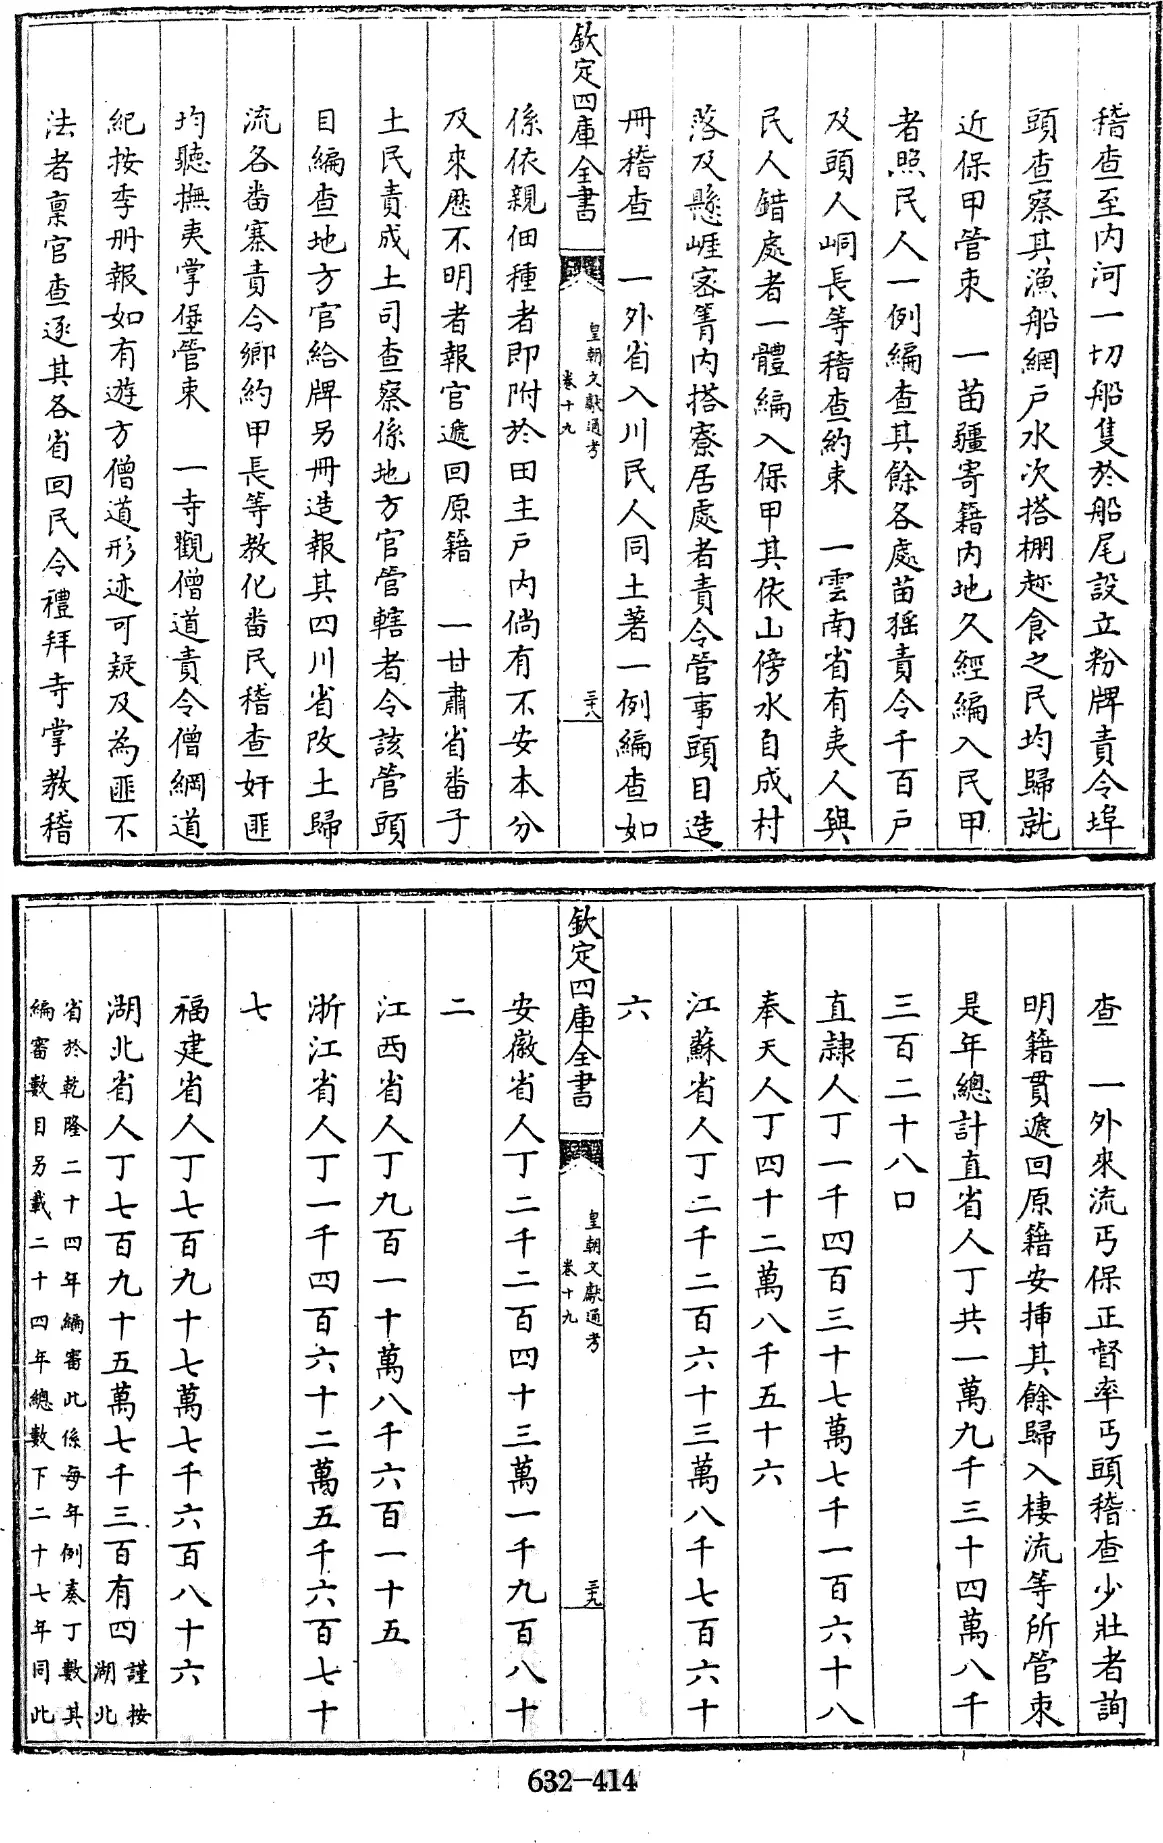 稽查至内河一切船隻於船尾設立粉牌責令埠
頭查察其漁船網戶水次搭棚趂食之民均歸就
近保甲管束　一苗疆寄籍内地久經編入民甲
者照民人一例編查其餘各處苗猺責令千百戶
及頭人峒長等稽查約束　一雲南省有夷人與
民人錯處者一體編入保甲其依山傍水自成村
落及懸崕宻箐内搭寮居處者責令管事頭目造
冊稽查　一外省入川民人同土著一例編查如
欽定四庫全書
皇朝文獻通考
卷十九
三十八
係依親佃種者即附於田主戶内倘有不安本分
及來厯不明者報官遞回原籍　一甘肅省番子
土民責成土司查察係地方官管轄者令該管頭
目編查地方官給牌另冊造報其四川省改土歸
流各番寨責令鄉約甲長等教化番民稽查奸匪
均聽撫夷掌堡管束　一寺觀僧道責令僧綱道
紀按季冊報如有遊方僧道形迹可疑及為匪不
法者稟官查逐其各省回民令禮拜寺掌教稽
查　一外來流丐保正督率丐頭稽查少壯者詢
明籍貫遞回原籍安揷其餘歸入棲流等所管束
是年總計直省人丁共一萬九千三十四萬八千
三百二十八口
直隷人丁一千四百三十七萬七千一百六十八
奉天人丁四十二萬八千五十六
江蘇省人丁二千二百六十三萬八千七百六十
六
欽定四庫全書
皇朝文獻通考
卷十九
三十九
安徽省人丁二千二百四十三萬一千九百八十
二
江西省人丁九百一十萬八千六百一十五
浙江省人丁一千四百六十二萬五千六百七十
七
福建省人丁七百九十七萬七千六百八十六
湖北省人丁七百九十五萬七千三百有四謹按湖北
省於乾隆二十四年編審此係每年例奏丁數其
編審數目另載二十四年總數下二十七年同此
632-414